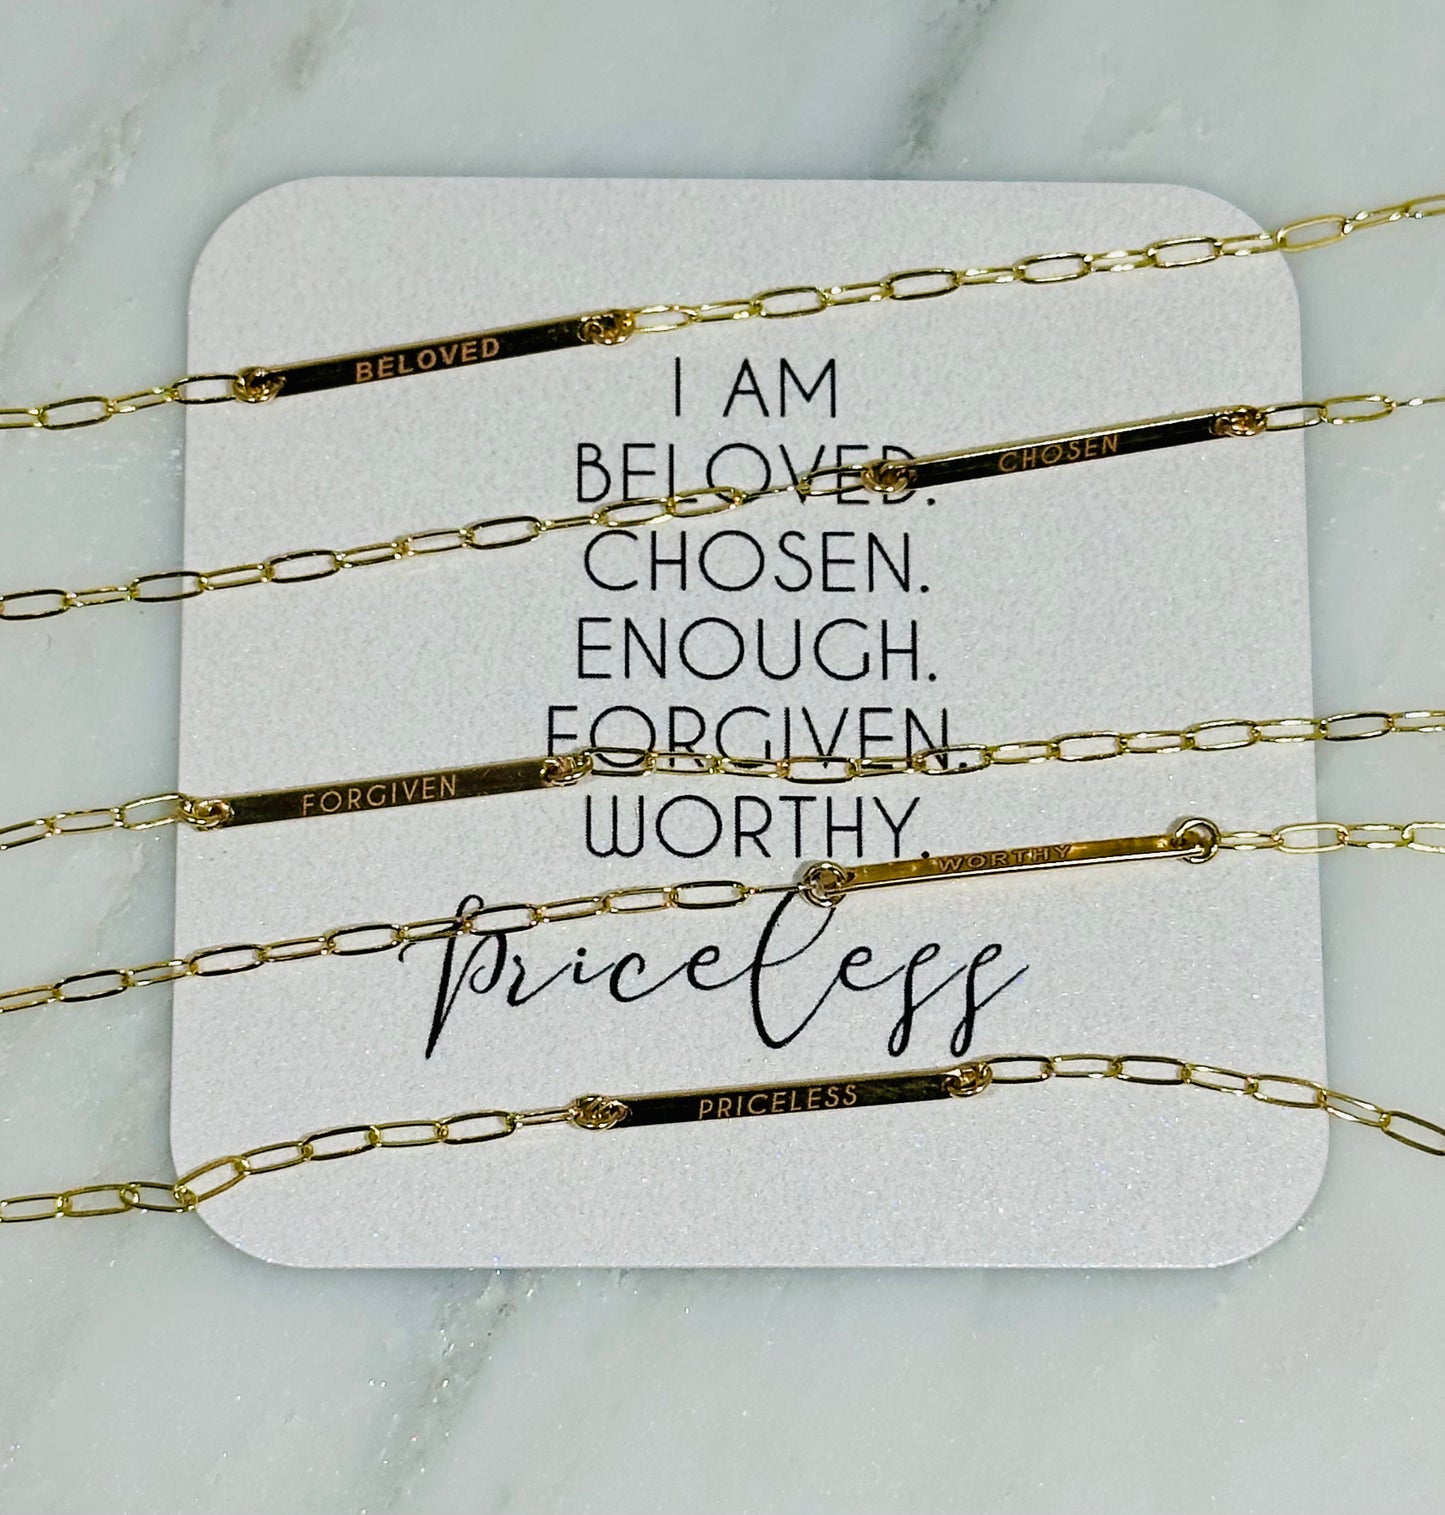 BELOVED
I AM
BELOVED.
CHOSEN
CHOSEN.
ENOUGH.
FORGIVEN.
FORGIVEN
WORTHY.
WORTHY
Priceless
PRICELESS